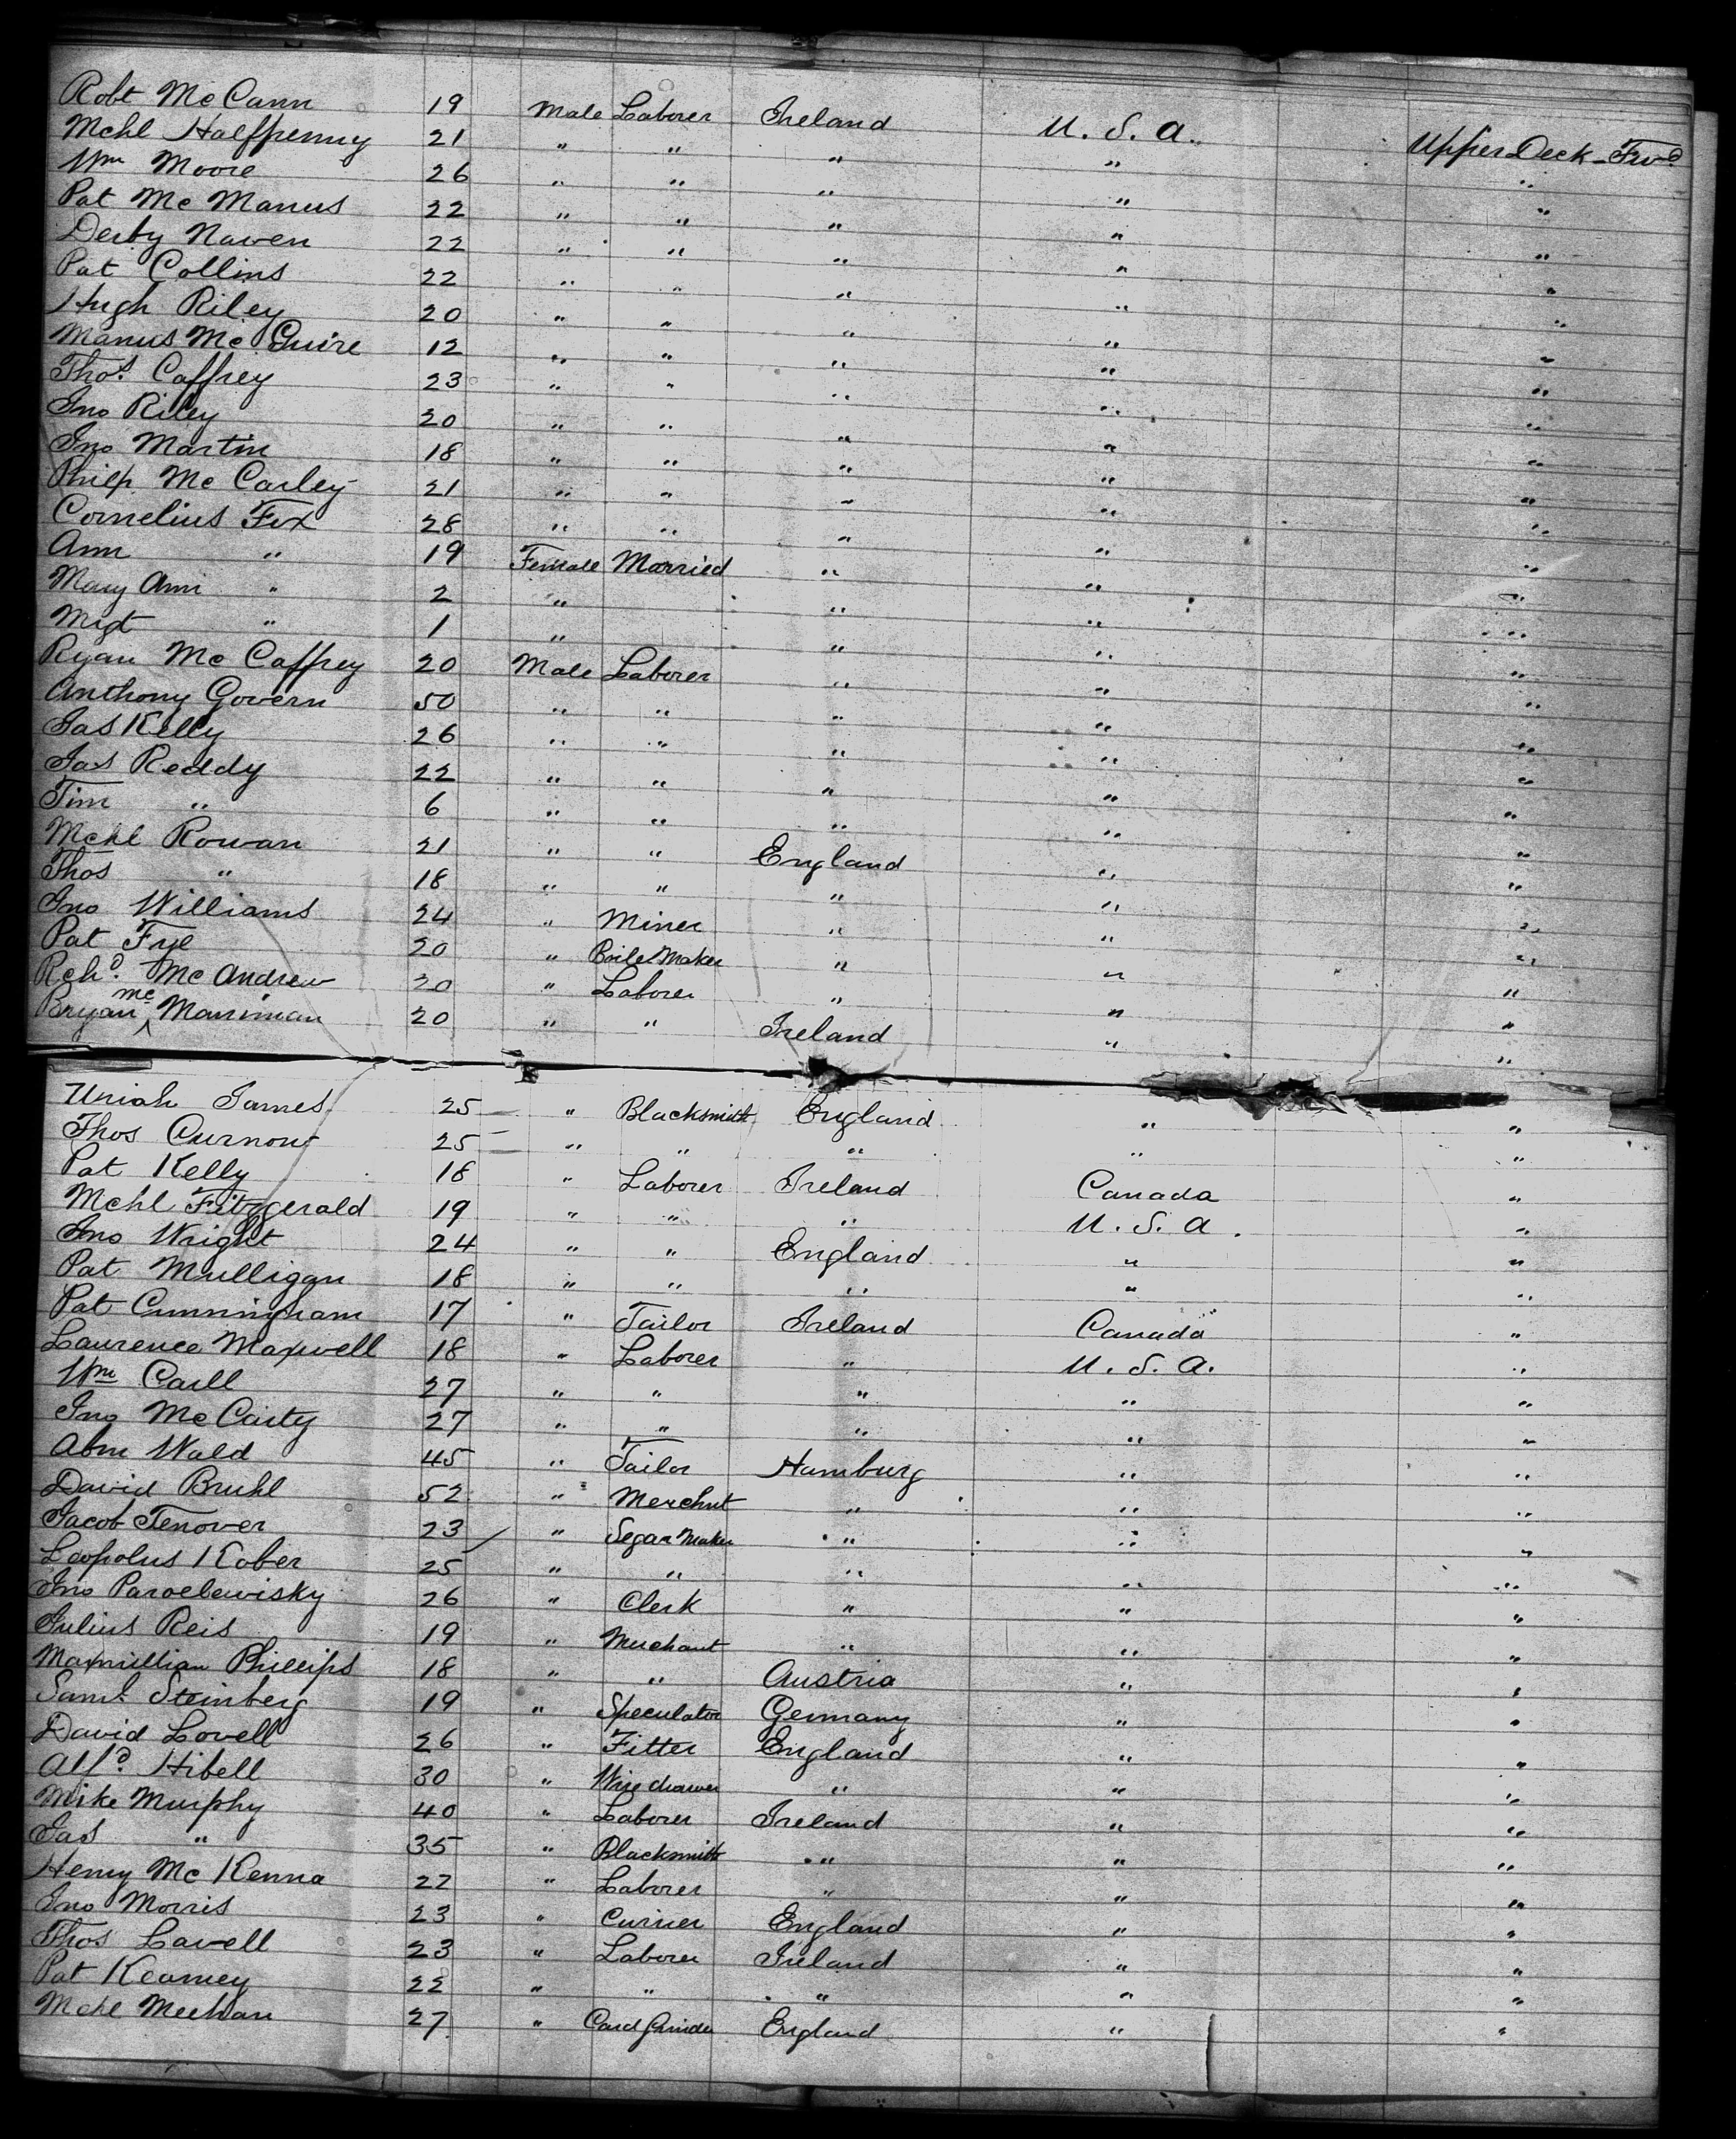 Robt McCann 19 Male Laborer Ireland U.S.A. Upper Deck-Fwd
Mchl Halfpenny 21 " " " " "
Wm Moore 26 " " " " "
Pat McManus 22 " " " " "
Derby Naven 22 " " " " "
Pat Collins 22 " " " " "
Hugh Riley 20 " " " " "
Manus McGuire 12 " " " " "
Thos. Caffrey 23 " " " " "
Jno Riley 20 " " " " "
Jno Martin 18 " " " " "
Philp McCarley 21 " " " " "
Cornelius Fox 28 " " " " "
Ann " 19 Female Married " " "
Mary Ann " 2 " " " "
Mgt " 1 " " " "
Ryan McCaffrey 20 Male Laborer " " "
Anthony Govern 50 " " " " "
Jas Kelly 26 " " " " "
Jas Reddy 22 " " " " "
Tim " 6 " " " " "
Mchl Rowan 21 " " England " "
Thos " 18 " " " " "
Jno Williams 24 " Miner " " "
Pat Fye 20 " Boile Maker " " "
Rchd. McAndrew 30 " Laborer " " "
Bryan Mc Marriman 20 " " Ireland " "
Uriah James 25 " Blacksmith England " "
Thos Curnow 25 " " " " "
Pat Kelly 18 " Laborer Ireland Canada "
Mchl Fitzgerald 19 " " " U.S.A. "
Jno Wright 24 " " England " "
Pat Mulligan 18 " " " " "
Pat Cunningham 17 " Tailor Ireland Canada "
Laurence Maxwell 18 " Laborer " U.S.A. "
Wm Carll 27 " " " " "
Jno McCarty 27 " " " " "
Abm Wald 45 " Tailor Hamburg " "
David Bruhl 52 " Merchnt " " "
Jacob Tenover 23 " Segar Maker " " "
Leopolus Kober 25 " " " " "
Jno Paroelewisky 26 " Clerk " " "
Julius Reis 19 " Merchant " " "
Maxmillian Phillips 18 " " Austria " "
Saml Steinberg 19 " Speculator Germany " "
David Lovell 26 " Fitter England " "
Alfd. Hibell 30 " Wire drawer " " "
Mike Murphy 40 " Laborer Ireland " "
Jas " 35 " Blacksmith " " "
Henry McKenna 22 " Laborer " " "
Jno Morris 23 " Currier England " "
Thos Lavell 23 " Laborer Ireland " "
Pat Kearney 22 " " " " "
Mchl Meehan 27 " Card Grinder England " "